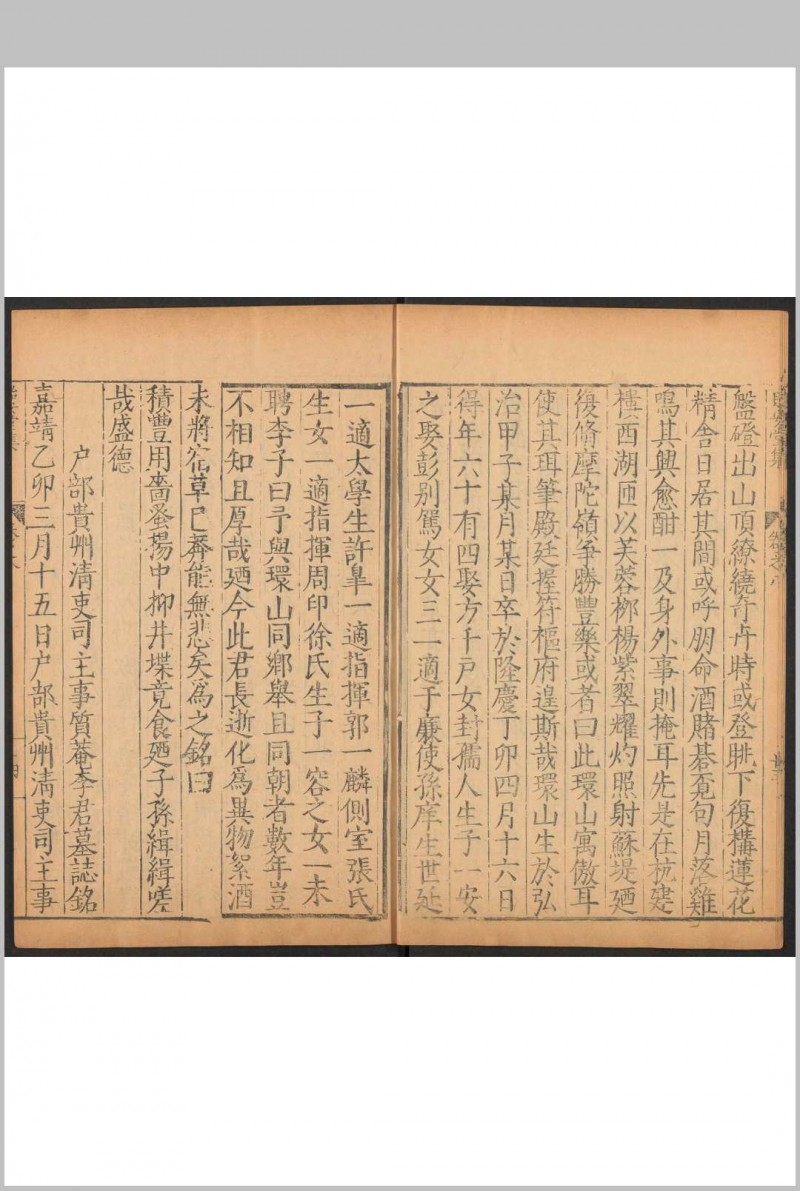 盤磴出山頂繚繞奇卉時或登眺下復搆蓮花
精舍日居其間或呼朋命酒賭碁覓句月落雞
鳴其興愈酣一及身外事則掩耳先是在杭建
樓西湖匝以芙蓉柳楊紫翠耀灼照射蘇堤廼
復脩摩陀嶺爭勝豐樂或者曰此環山寓傲耳
使其珥筆殿廷握符樞府遑斯哉環山生於弘
治甲子某月某日卒於隆慶丁卯四月十六日
得年六十有四娶方千戶女封孺人生子一安
之娶彭别駕女女三一適于廉使孫庠生世延
一適太學生許臯一適指揮郭一麟側室張氏
生女一適指揮周印徐氏生子一容之女一未
聘李子曰予與環山同鄉舉且同朝者數年豈
不相知且厚哉廼今此君長逝化為異物絮酒
未將宿草已薺能無悲矣為之銘曰
積豐用嗇蚤揚中抑井堞竟食廼子孫緝緝嗟
哉盛德
户部貴州清吏司主事質菴李君墓誌銘
嘉靖乙卯三月十五日户部貴州清吏司主事